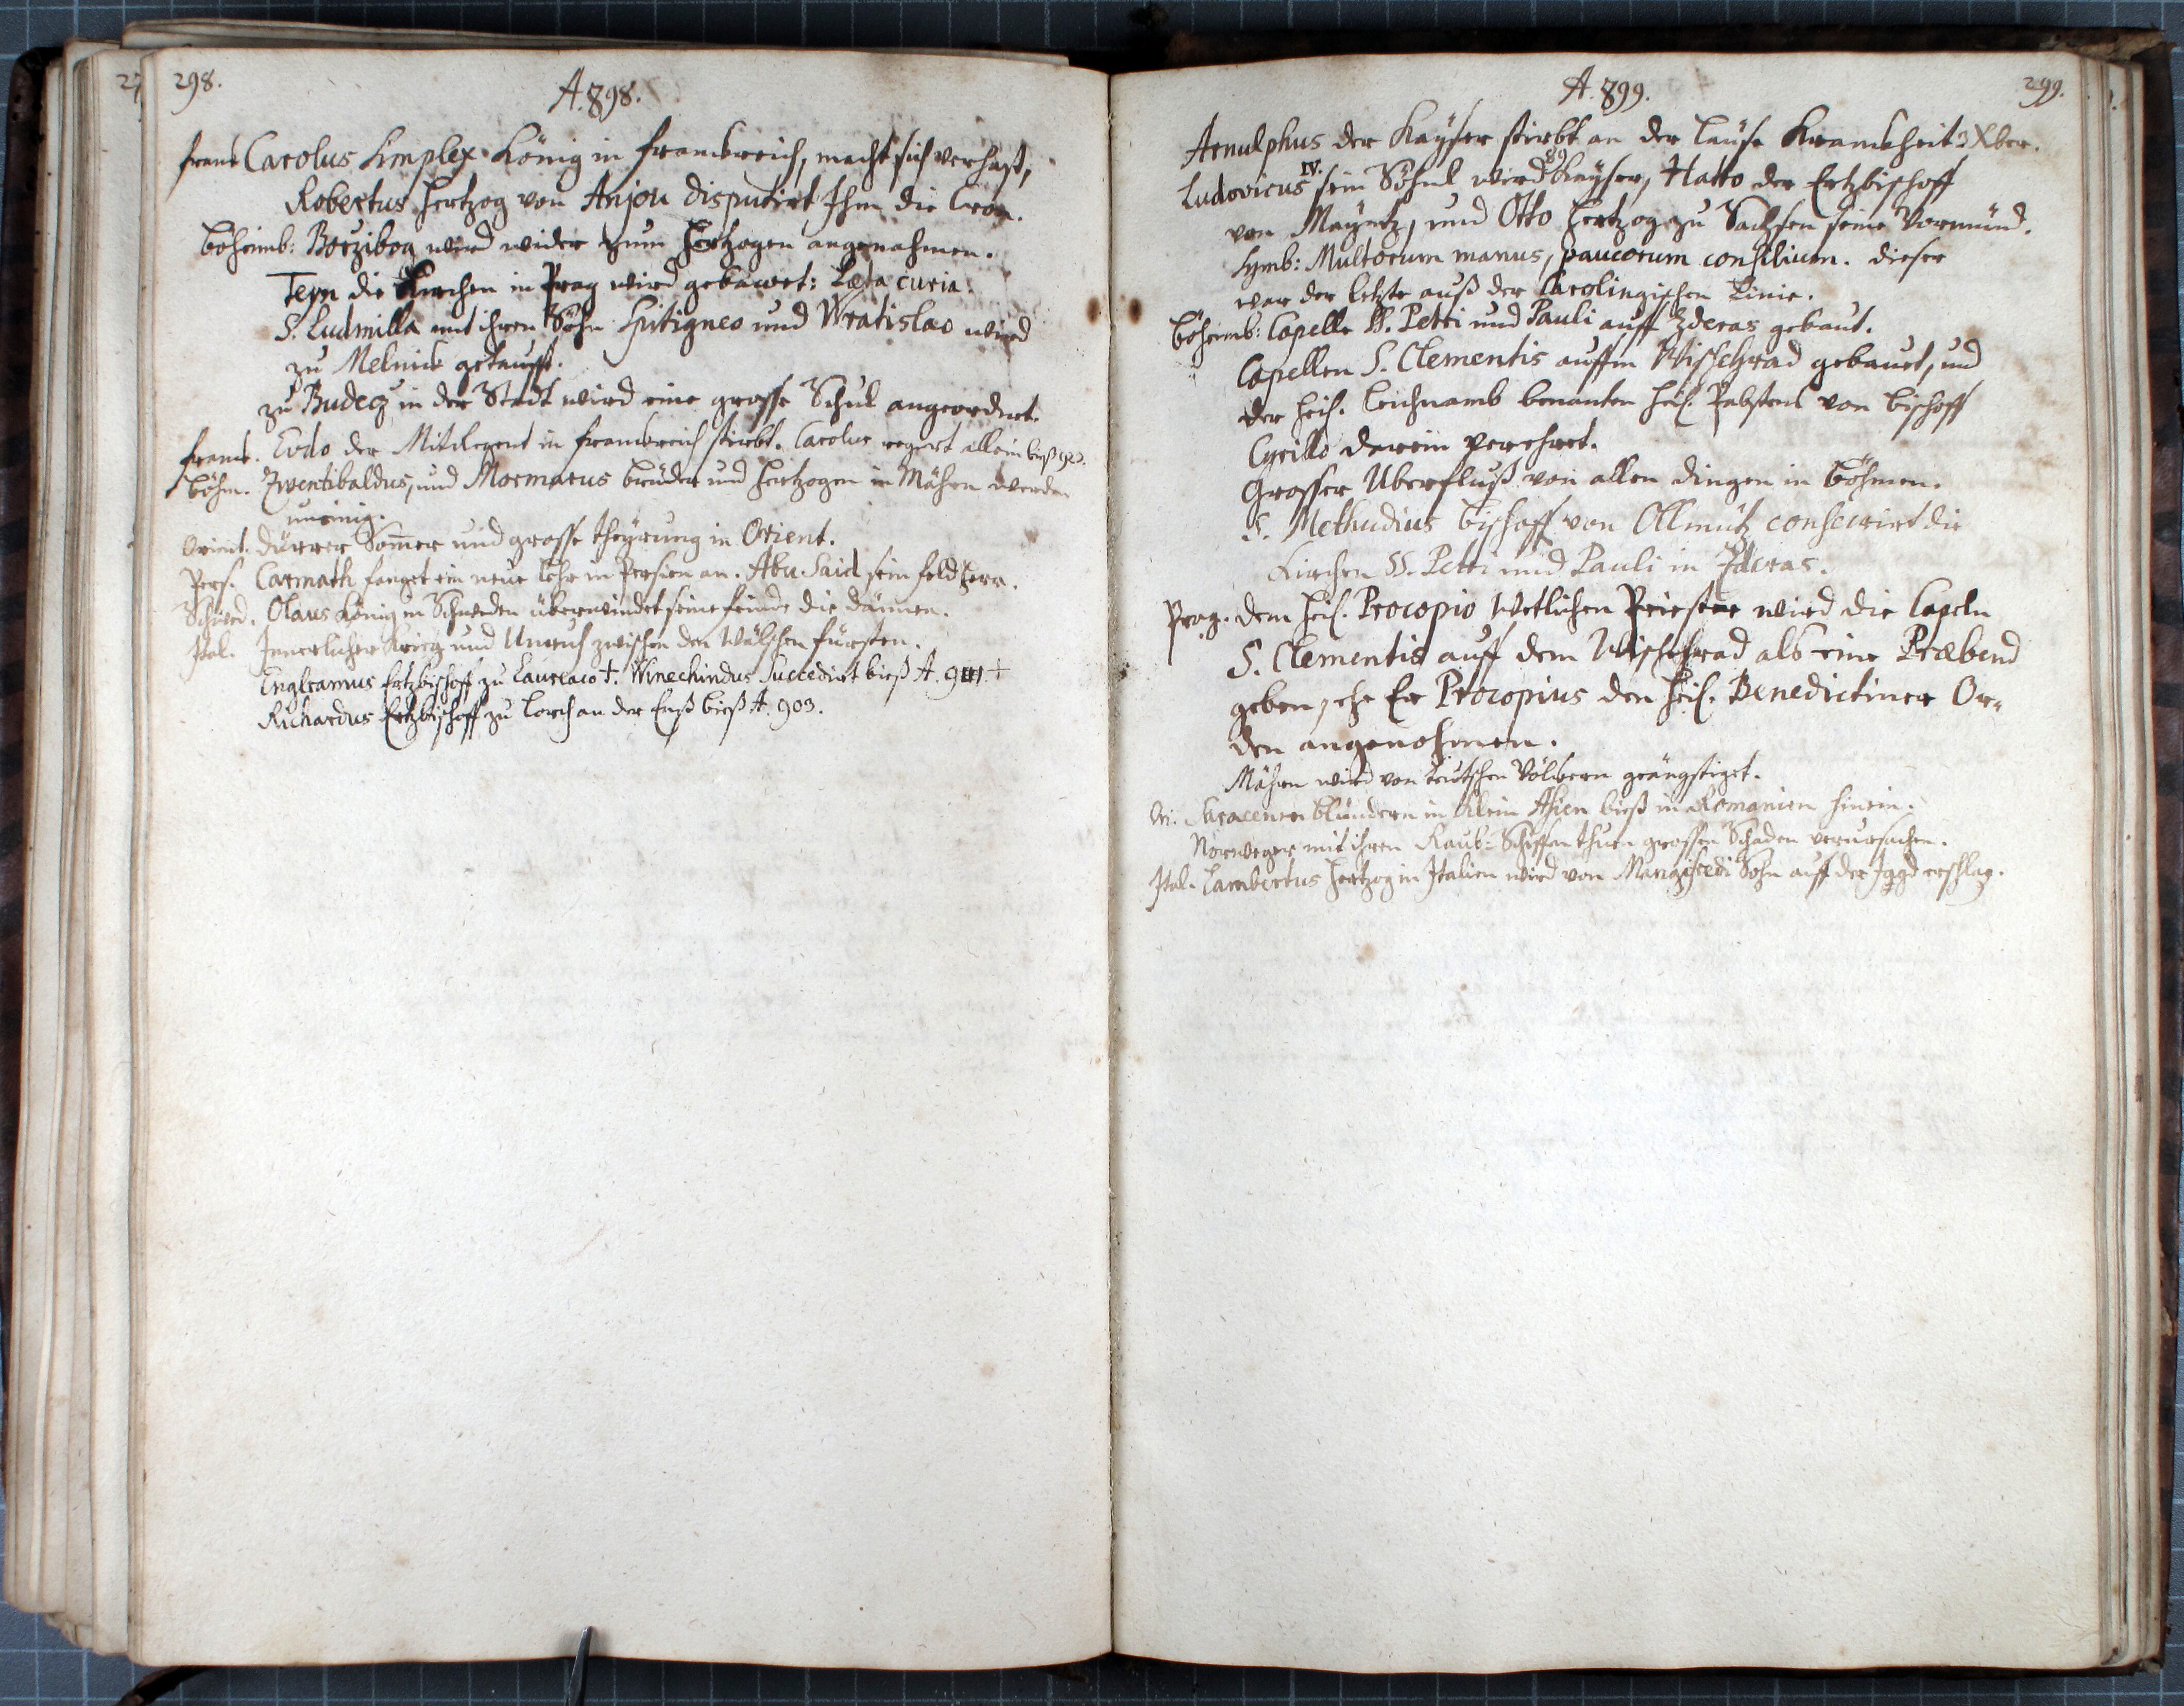 298.
A. 898.
Franck Carolus Simplex König in Franckreich, macht sich verhast,
Robertus Hertzog von Anjou disputirt Ihm die Cron.
Böheimb: Borzibog wird wider zum Hertzogen angenahmen.
Teyn die Kirchen in Prag wird gebawet: Læta curia.
S. Ludmilla mit ihren Söhn Spitigneo und Wratislao wird
zu Melnick getaufft.
zu Budecz in der Stadt wird eine grosse Schul angeordnet.
Franck. Eudo der MitRegent in Franckreich stirbt. Carolus regirt allein bieß 922.
Böhm. Zwentibaldus, und Mormarus brüder und Hertzogen in Mähren werden
uneinig.
Orient. Dürrer Som̄er und grosse theyrung in Orient.
Pers. Carmath fanget ein neue Lehr in Persien an. Abu Said sein feldherr.
Schwed. Olaus König in Schweden überwindet seine feinde die Dännen.
Ital. Innerlicher Krieg und Unruh zwischen den Wälschen fürsten.
Engleamus Ertzbischoff zu Laureaco †. Winechindus Succedirt bieß A.
Richardus Ertzbischoff zu Lorch an der Enß bieß A. 903.
299.
A. 899.
Arnulphus der Kayser stirbt an der Lause Kranckheit 3 Xber.
Ludovicus IV. sein Söhnl wird 89 Kayser, Hatto der Ertzbischoff
von Mayntz, und Otto Hertzog zu Sachsen seine Vormünd.
Symb: Multorum manus, paucorum consilium. dieser
war der letzte auß der Carolingischen Linie.
Böheimb: Capelle SS. Petri und Pauli auff Zderas gebaut.
Capellen S. Clementis auffm Wissehrad gebauet, und
der Heil. Leichnamb benanten Heil. Pabstens von Bischoff
Cyrillo darein verehret.
Grosser Uberfluß von allen dingen in Böhmen.
S. Methudius Bischoff von Ollmütz consecrirt die
Kirchen SS. Petri und Pauli in Zderas.
Prag. dem Heil. Procopio Weltlichen Priester wird die Capeln
S. Clementis auff dem Wischehrad als eine Præbend
geben, ehe Er Procopius den Heil. Benedictiner Or-
den angenohmen.
Mähren wird von Teutschen Völckern geängstiget.
Ori: Saracenen blündern in Klein Asien bieß in Romanien hinein.
Norweger mit ihren Raub-Schiffen thuen grossen Schaden verursachen.
Ital. Lambertus Hertzog in Italien wird von Mangifredi Sohn auff der Jagd erschlag.